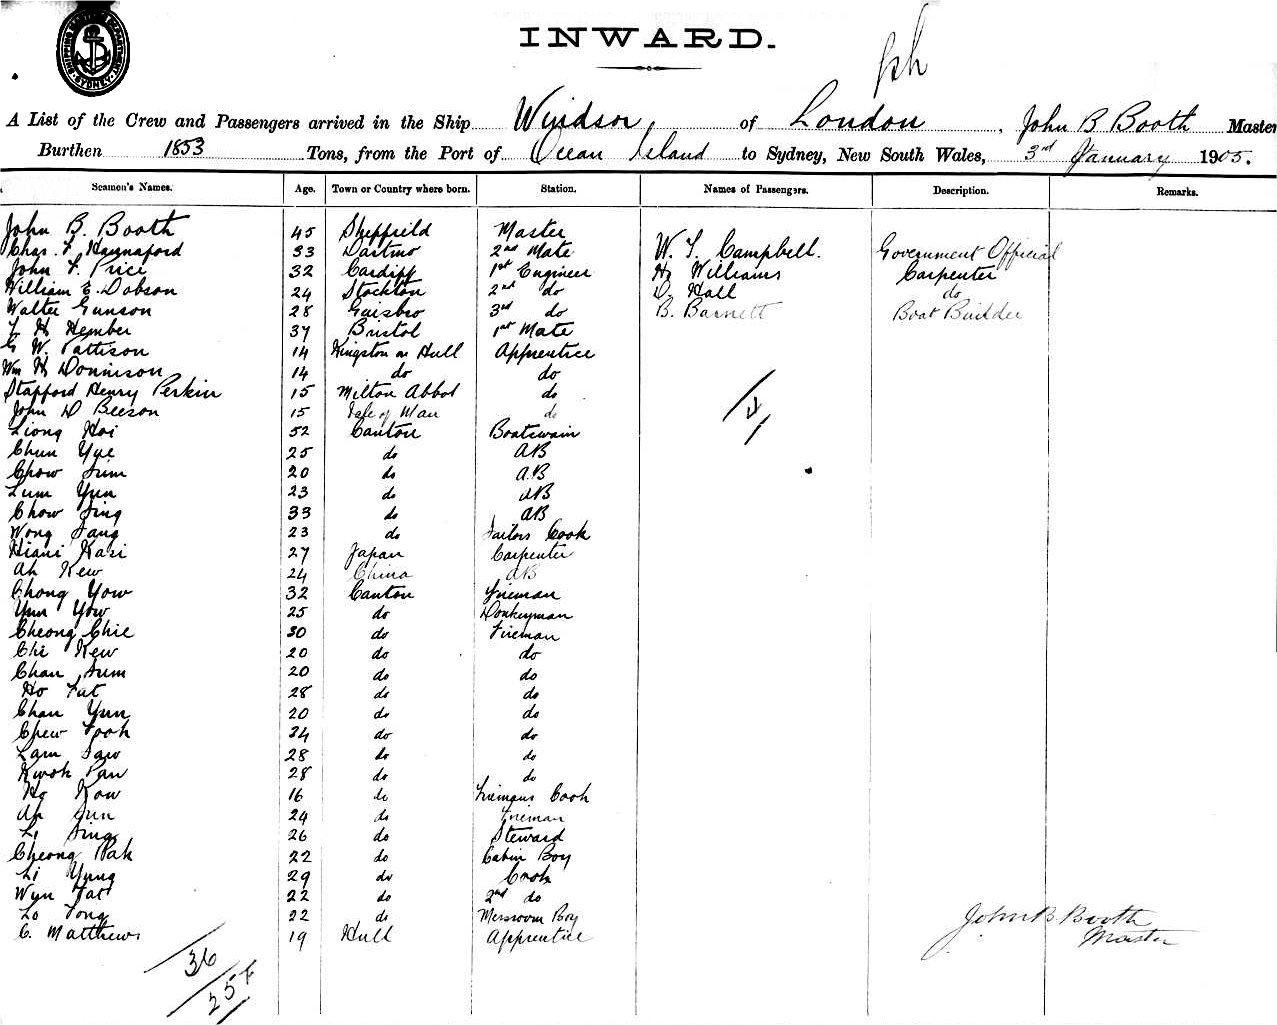 SHIPPING MASTER'S DEPARTMENT SYDNEY
INWARD.
A List of the Crew and Passengers arrived in the Ship Windsor of London, John B Booth Master
Burthen 1853 Tons, from the Port of Ocean Island to Sydney, New South Wales, 3rd January 1905.
Seamen's Names. Age. Town or Country where born. Station. Names of Passengers. Description. Remarks.
John B. Booth 45 Sheffield Master
Chas. F. Hannaford 33 Dartmo 2nd Mate W. T. Campbell. Government Official
John F. Price 32 Cardiff 1st Engineer H. Williams Carpenter
William E. Dobson 24 Stockton 2nd do D. Hall do
Walter Gunson 28 Guisbro 3rd do B. Barnett Boat Builder
F. H. Hember 37 Bristol 1st Mate
G W. Pattison 14 Kingston on Hull Apprentice
Wm H. Donnison 14 do do
Stafford Henry Perkin 15 Milton Abbot do
John D Beeson 15 Isle of Man do
Liong Hoi 52 Canton Boatswain
Chun Yue 25 do AB
Chow Sum 20 do A.B
Lum Yun 23 do AB
Chow Sing 33 do AB
Wong Sang 23 do Sailors Cook
Hiani Kasi 27 Japan Carpenter
Ah Kew 24 China AB
Chong Yow 32 Canton Fireman
Yun Yow 25 do Donkeyman
Cheong Chie 30 do Fireman
Chi Kew 20 do do
Chan Sum 20 do do
Ho Fat 28 do do
Chan Yun 20 do do
Chew Fook 34 do do
Lam Saw 28 do do
Kwok Pan 28 do do
Ho Kow 16 do Firemans Cook
Ah Sun 24 do Fireman
Li Sing 26 do Steward
Cheong Pak 22 do Cabin Boy
Li Yung 29 do Cook
Wyn Fat 22 do 2nd do
Lo Tong 22 do Messroom Boy
C. Matthews 19 Hull Apprentice
4
John B. Booth
Master
36
25